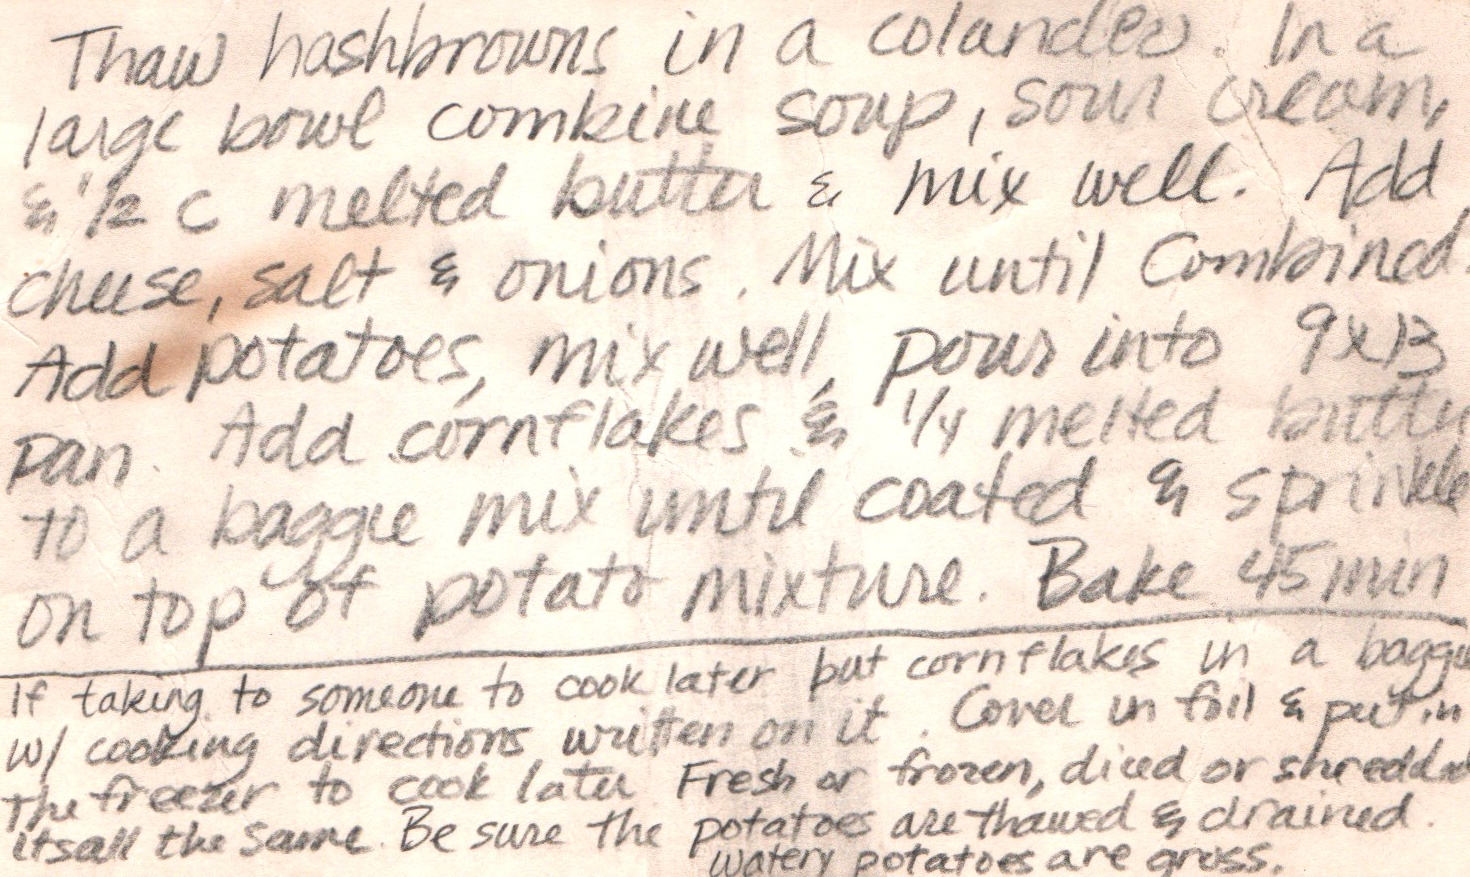 Thaw hashbrowns in a colander. In a
large bowl combine soup, sour cream,
& 1/2 c melted butter & mix well. Add
cheese, salt & onions. Mix until Combined.
Add potatoes, mix well, pour into 9x13
pan. Add cornflakes & 1/4 melted butter
to a baggie mix until coated & sprinkle
on top of potato mixture. Bake 45 min
If taking to someone to cook later but cornflakes in a baggie
w/ cooking directions written on it. Cover in foil & put in
The freezer to cook later. Fresh or frozen, diced or shredded
itsall the same. Be sure the potatoes are thawed & drained.
watery potatoes are gross.